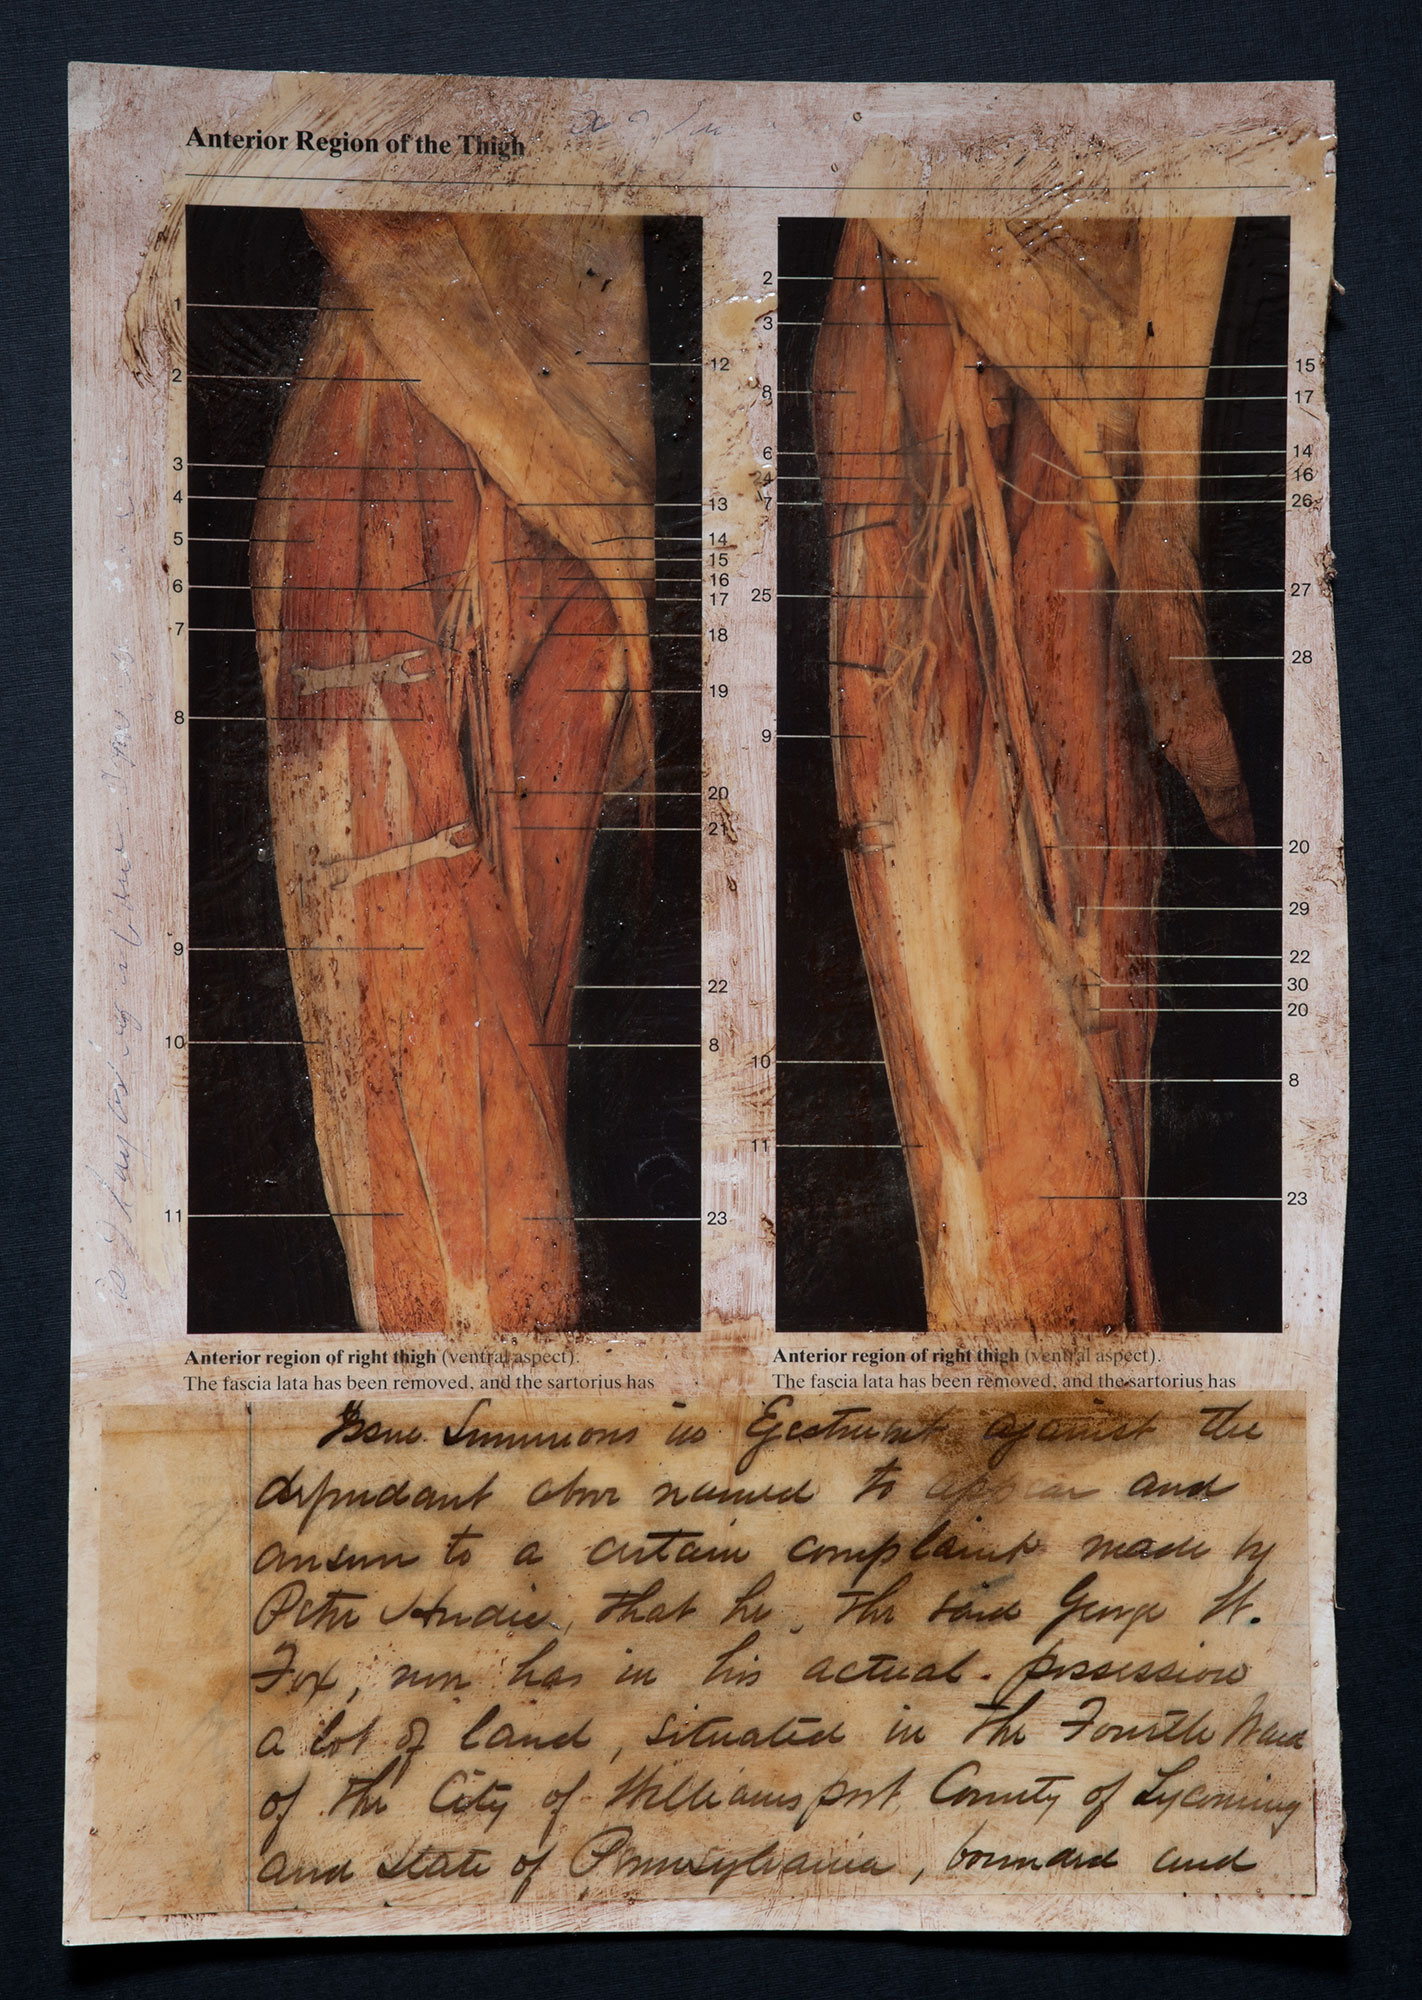 Anterior Region of the Thigh
1
2
3
4
5
6
7
8
9
10
11
12
13
14
15
16
17
18
19
20
21
22
8
23
2
3
8
6
24
7
25
9
10
11
15
17
14
16
26
27
28
20
29
22
30
20
8
23
Anterior region of right thigh (ventral aspect).
The fascia lata has been removed, and the sartorius has
Anterior region of right thigh (ventral aspect).
The fascia lata has been removed, and the sartorius has
Issue Summons in Ejectment against the
defendant above named to appear and
answer to a certain complaint made by
Peter Herdic, that he, the said George W.
Fox, now has in his actual possession
a lot of land, situated in the Fourth Ward
of the City of Williamsport, County of Lycoming
and State of Pennsylvania, bounded and